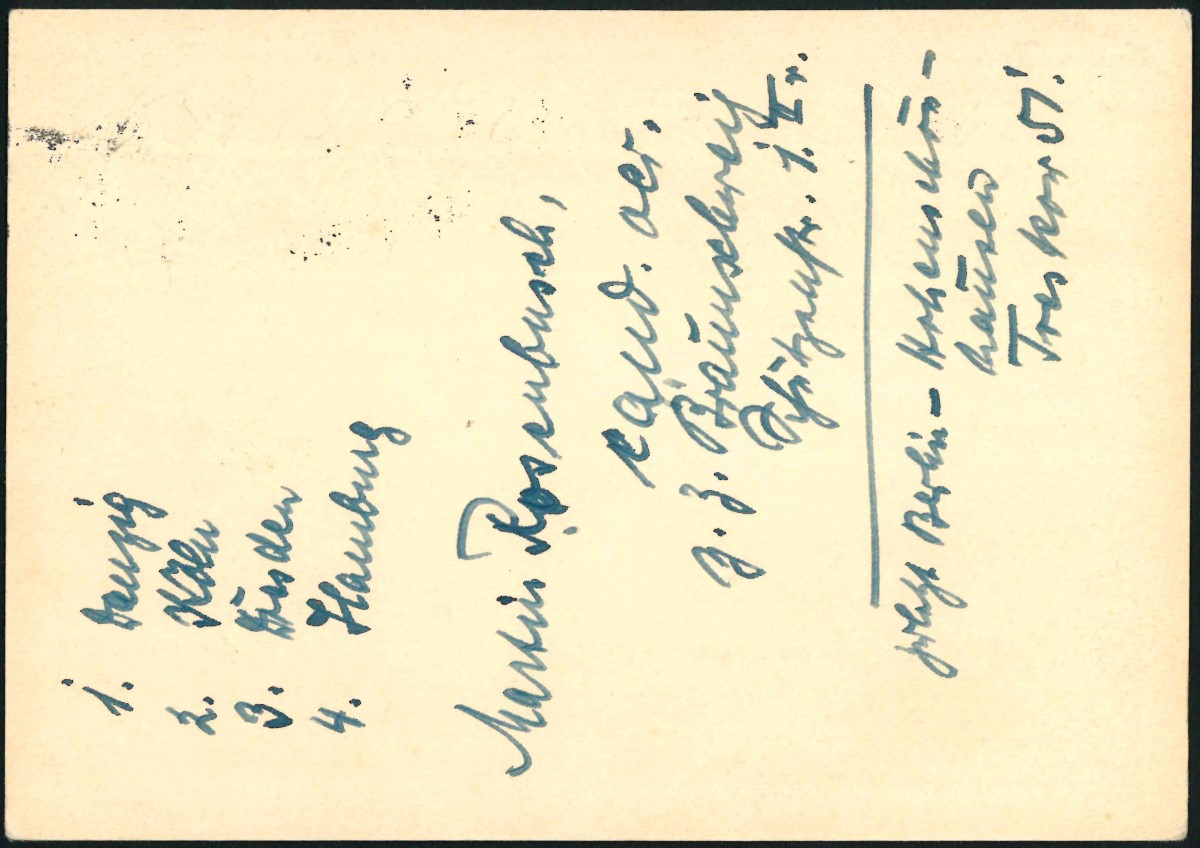 1. Danzig
2. Köln
3. Dresden
4. Hamburg
Martin Rosenbusch,
cand. aer.
z. Z. Braunschweig
Schützenstr. 1. II r.
Berlin - Hohenschön-
hausen
Treskow 51.